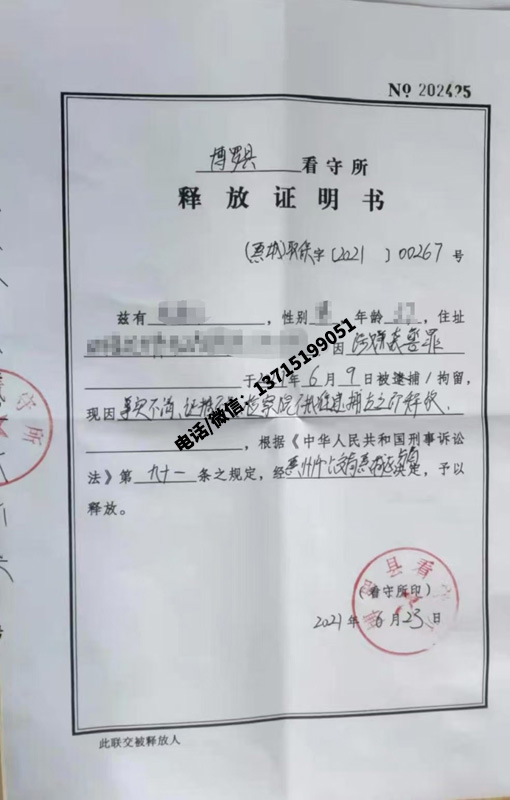 № 202425
博罗县 看守所
释放证明书
(惠城)取保字〔2021〕00267号
兹有 ，性别 年龄 ，住址
因涉嫌 罪
于 年6月9日被逮捕/拘留，
现因事实不清、证据不足检察院不批准逮捕 释放，
，根据《中华人民共和国刑事诉讼
法》第九十一条之规定，经惠州市公安局惠城区分局决定，予以
释放。
(看守所印)
2021年6月23日
此联交被释放人
电话/微信：13715199051
县看
守所